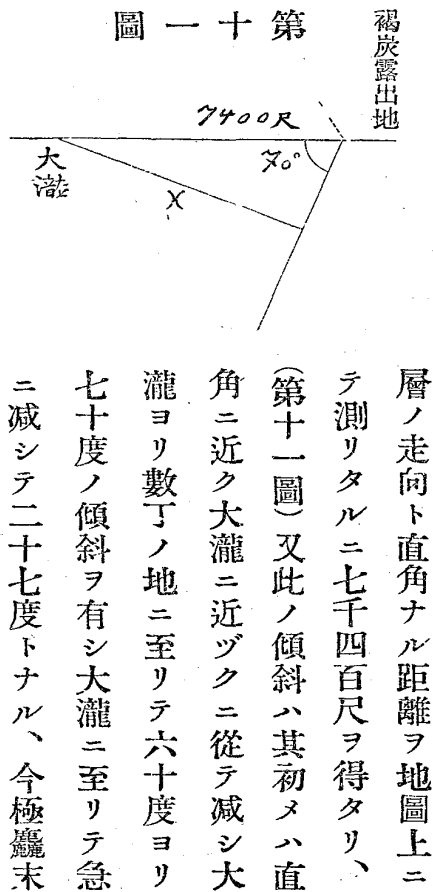 第十一圖
褐炭露出地
7400尺
70°
大瀧
X
層ノ走向ト直角ナル距離ヲ地圖上ニ
テ測リタルニ七千四百尺ヲ得タリ、
(第十一圖)又此ノ傾斜ハ其初メハ直
角ニ近ク大瀧ニ近ヅクニ從テ减シ大
瀧ヨリ數丁ノ地ニ至リテ六十度ヨリ
七十度ノ傾斜ヲ有シ大瀧ニ至リテ急
ニ减シテ二十七度トナル、今極麤末